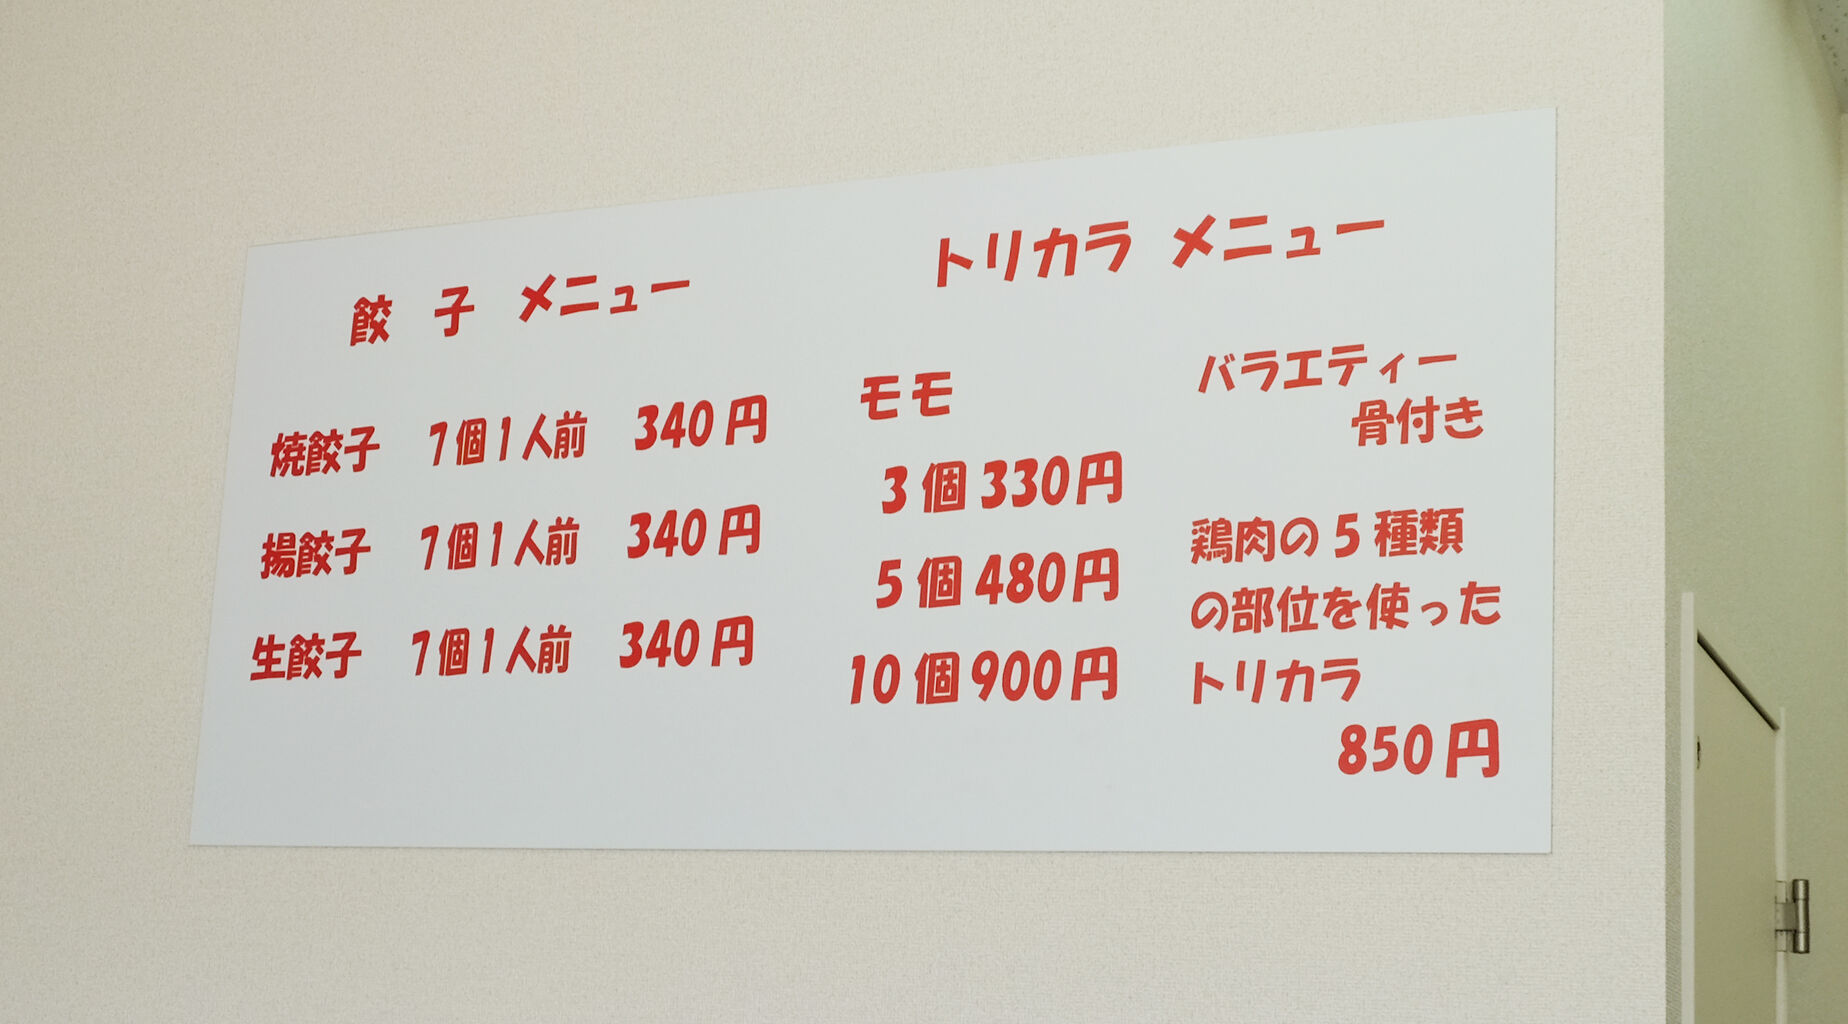 餃 子 メニュー
焼餃子 7個1人前 340円
揚餃子 7個1人前 340円
生餃子 7個1人前 340円
トリカラ メニュー
モモ
3個330円
5個480円
10個900円
バラエティー
骨付き
鶏肉の5種類
の部位を使った
トリカラ
850円